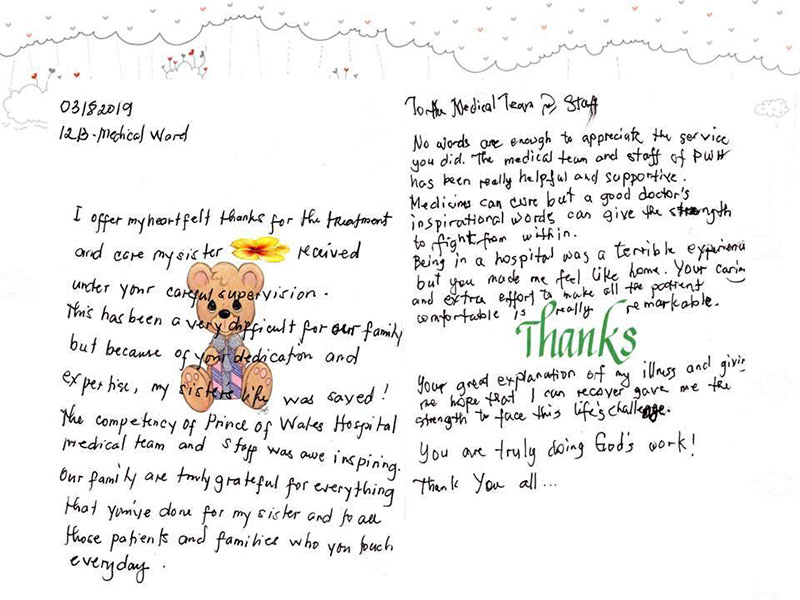 03/8 2019
12B-Medical Ward
I offer my heartfelt thanks for the treatment
and care my sister received
under your careful supervision.
This has been a very difficult for our family
but because of your dedication and
expertise, my sisters life was saved!
The competency of Prince of Wales Hospital
medical team and staff was awe inspiring.
Our family are truly grateful for everything
that you've done for my sister and to all
those patients and families who you touch
everyday.
To the Medical Team & Staff
No words are enough to appreciate the service
you did. The medical team and staff of PWH
has been really helpful and supportive.
Medicines can cure but a good doctor's
inspirational words can give the strength
to fight from within.
Being in a hospital was a terrible experience
but you made me feel like home. Your caring
and extra effort to make all the patient
comfortable is really remarkable.
Thanks
Your great explanation of my illness and givin
me hope that I can recover gave me the
strength to face this life's challenge.
You are truly doing God's work!
Thank You all...